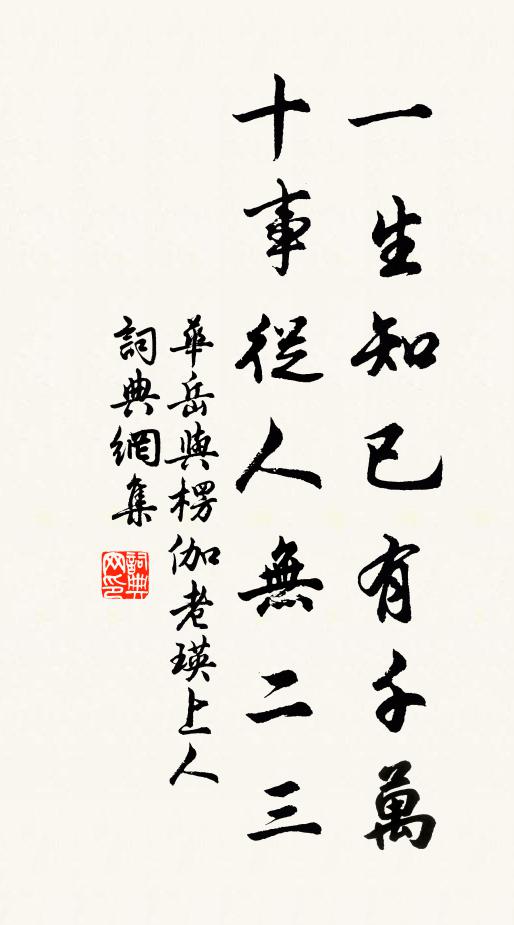 一生知已有千萬
十事從人無二三
華岳與楞伽老瑛上人
詞典網集
詞典网印